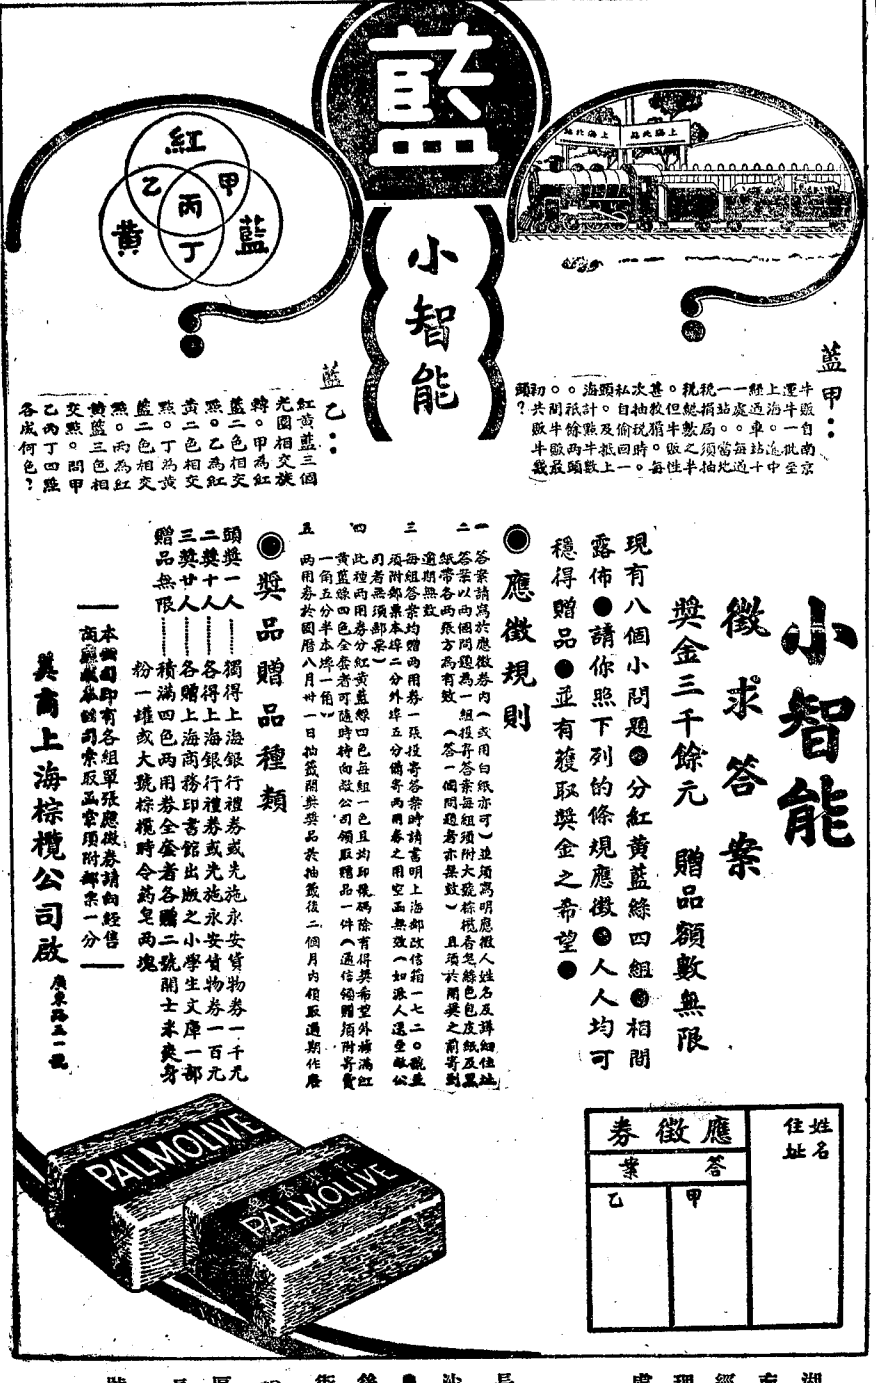 藍
小智能
紅
乙
甲
丙
黃
藍
丁
上海北站
上海北站
藍甲：
牛販自南京
運牛一批至
上海。中
經過車站十
一處。每過
一站。當地
稅捐局須抽
稅總數之半
。但牛販性
甚救捐。每
次抽稅時。
私自偷回一
頭。及抵上
海計點牛數
。祇餘兩頭
。問牛販最
初共販牛幾
頭？
藍乙：
紅黃藍三個
光圈相交旋
轉。甲為紅
藍二色相交
點。乙為紅
黃二色相交
點。丁為黃
藍二色相交
點。丙為紅
黃藍三色相
交點。問甲
乙丙丁四點
各成何色？
小智能
徵求答案
獎金三千餘元 贈品額數無限
現有八個小問題●分紅黃藍綠四組●相間
露佈●請你照下列的條規應徵●人人均可
穩得贈品●並有獲取獎金之希望●
◉應徵規則
一 答案請寫於應徵券內（或用白紙亦可）並須寫明應徵人姓名及詳細住址
二 答案以兩個問題為一組投寄答案每組須附大號棕欖香皂綠色包皮紙及黑
紙帶各兩張方為有效（答一個問題者亦無效）且須於開獎之前寄到
逾期無效
三 每組答案均贈兩用券一張投寄答案時請書明上海郵政信箱一七二〇號並
須附郵票本埠二分外埠五分備寄兩用券之用空函無效（如派人送至敝公
司者無須郵票）
四 此種兩用券分紅黃藍綠四色每組一色且均印號碼除有得獎希望外積滿紅
黃藍綠四色全套者可隨時持向敝公司領取贈品一件（通信領贈須附寄費
一角五分半本埠一角）
五 兩用券於國曆八月卅一日抽籤開獎獎品於抽籤後二個月內領取過期作廢
◉獎品贈品種類
頭獎一人………獨得上海銀行禮券或先施永安貨物券一千元
二獎十人………各得上海銀行禮券或先施永安貨物券一百元
三獎廿人………各贈上海商務印書館出版之小學生文庫一部
贈品無限………積滿四色兩用券全套者各贈二號開士米爽身
粉一罐或大號棕欖時令藥皂兩塊
本公司印有各組單張應徵券請向經售
商店或敝公司索取函索須附郵票一分
英商上海棕欖公司啟 廣東路五一號
PALMOLIVE
PALMOLIVE
姓名
住址
應徵券
答案
甲
乙